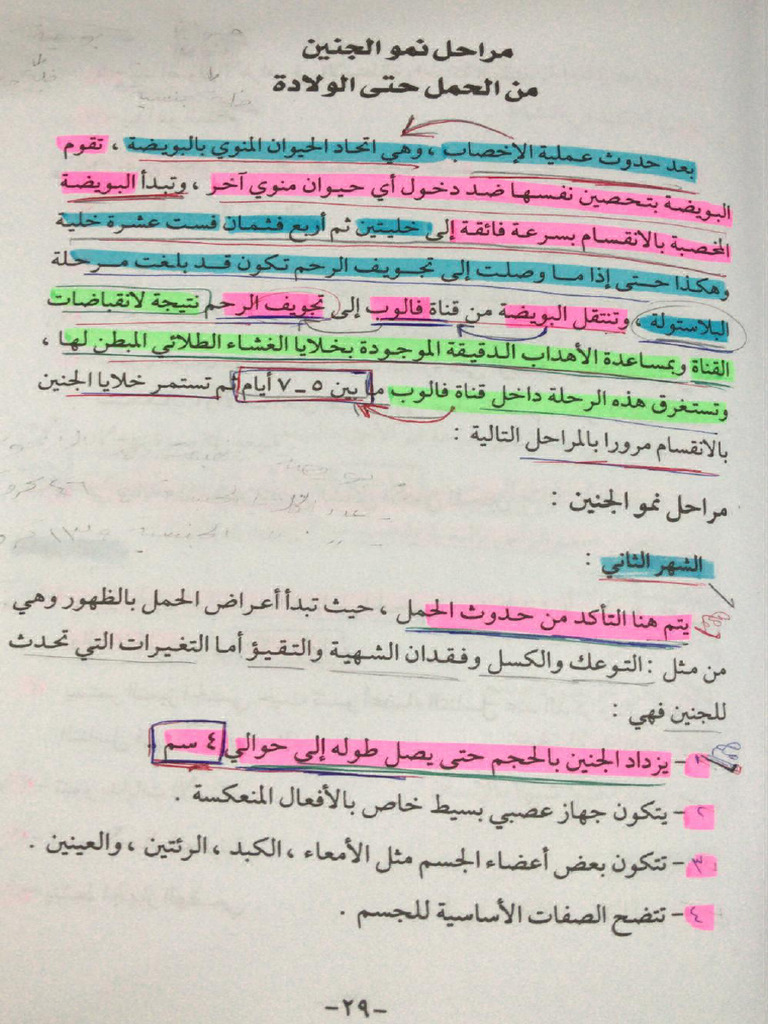 مراحل نمو الجنين
من الحمل حتى الولادة
بعد حدوث عملية الإخصاب ، وهي اتحاد الحيوان المنوي بالبويضة ، تقوم
البويضة بتحصين نفسها ضد دخول أي حيوان منوي آخر ، وتبدأ البويضة
المخصبة بالانقسام بسرعة فائقة إلى خليتين ثم أربع فثمان فست عشرة خلية
وهكذا حتى إذا ما وصلت إلى تجويف الرحم تكون قد بلغت مرحلة
البلاستولة ، وتنتقل البويضة من قناة فالوب إلى تجويف الرحم نتيجة لانقباضات
القناة وبمساعدة الأهداب الدقيقة الموجودة بخلايا الغشاء الطلائي المبطن لها ،
وتستغرق هذه الرحلة داخل قناة فالوب ما بين ٥ ـ ٧ أيام ثم تستمر خلايا الجنين
بالانقسام مرورا بالمراحل التالية :
مراحل نمو الجنين :
الشهر الثاني :
يتم هنا التأكد من حدوث الحمل ، حيث تبدأ أعراض الحمل بالظهور وهي
من مثل : التوعك والكسل وفقدان الشهية والتقيؤ أما التغيرات التي تحدث
للجنين فهي :
١ - يزداد الجنين بالحجم حتى يصل طوله إلى حوالي ٤ سم .
٢ - يتكون جهاز عصبي بسيط خاص بالأفعال المنعكسة .
٣ - تتكون بعض أعضاء الجسم مثل الأمعاء ، الكبد ، الرئتين ، والعينين .
٤ - تتضح الصفات الأساسية للجسم .
-٢٩-